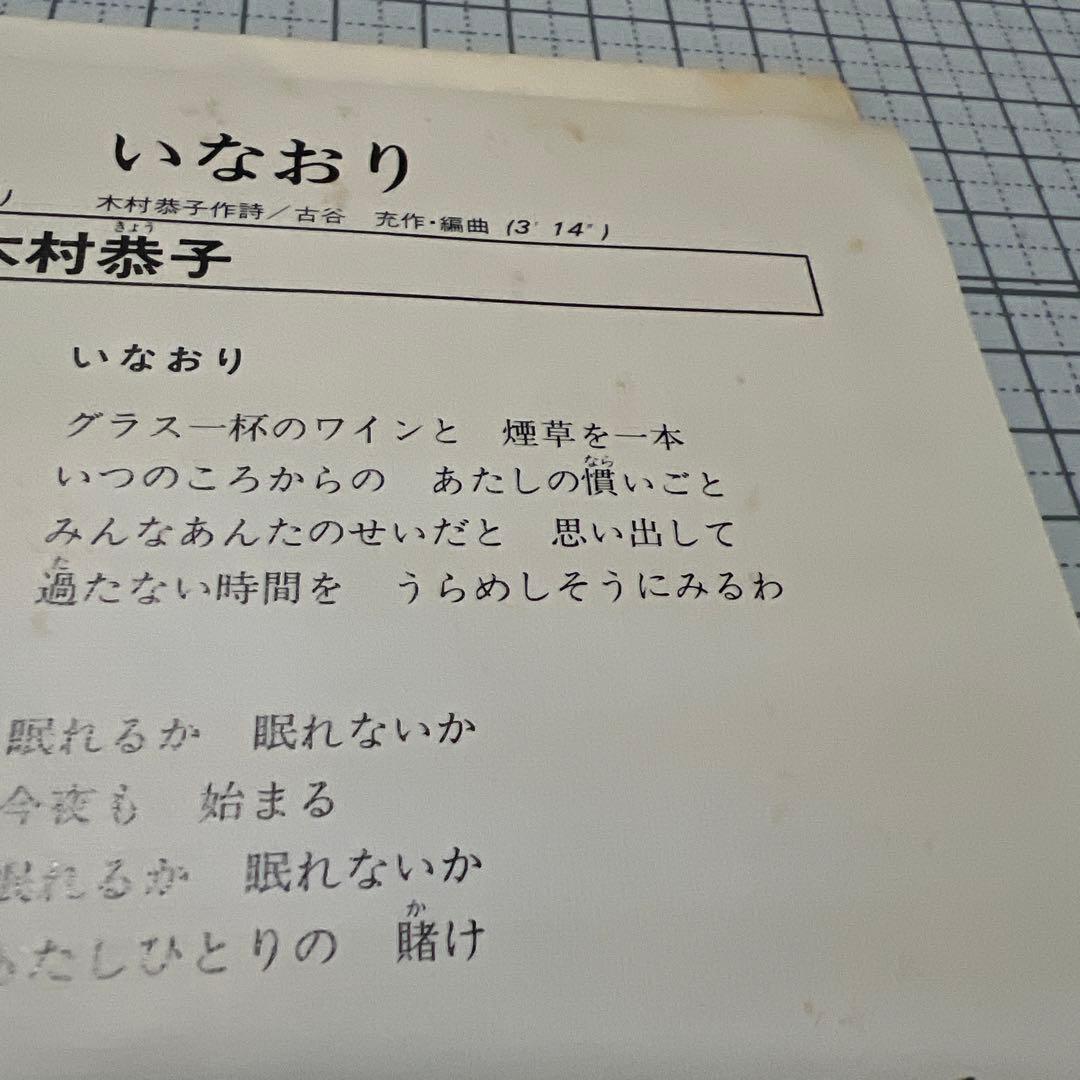 いなおり
木村恭子作詩／古谷　充作・編曲 (3′14″)
きょう
木村恭子
いなおり
グラス一杯のワインと　煙草を一本
なら
いつのころからの　あたしの慣いごと
みんなあんたのせいだと　思い出して
た
過たない時間を　うらめしそうにみるわ
眠れるか　眠れないか
今夜も　始まる
眠れるか　眠れないか
か
あたしひとりの　賭け